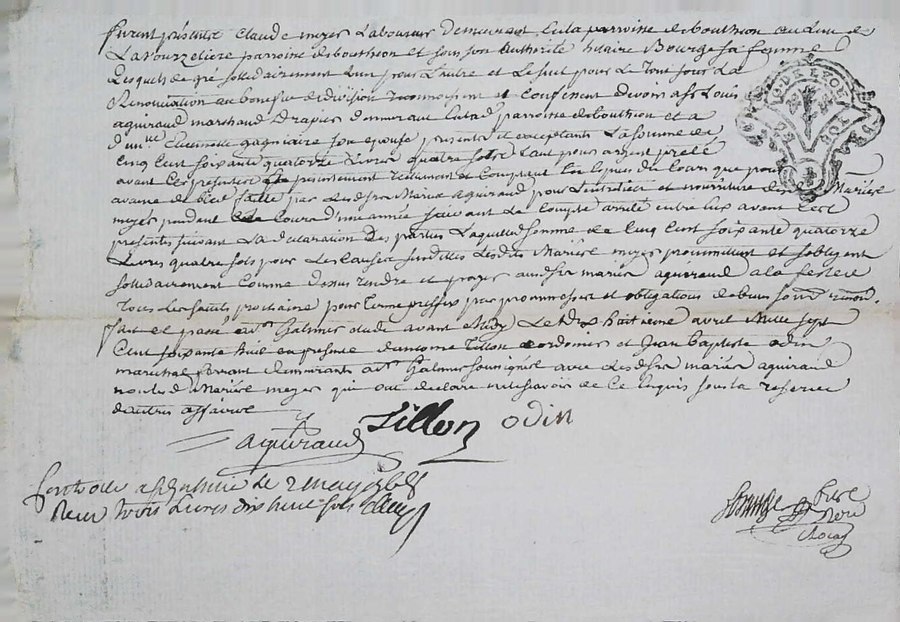 furent présents claude meyer Laboureur demeurant en la parroisse de bouthion au Lieu de
Lavourzeliere parroisse de bouthion et sous son authorité hilaire Bourge sa femme
Lesquels de gré sollidairement Lun pour Lautre et Le seul pour Le Tout sous La
Renonciation au benefice de division reconnoissent et confessent devoir à Sr Louis
aguiraud marchand Drapier demeurant parroisse de bouthion et a
gagniaire son epouse presents et acceptants La somme de
cinq cent soixante quatorze Livres quatre sols Tant pour argent preté
avant Ces presentes reellement et Comptant en especes du Cours que pour
avance de bled faitte par Lesd mariés aguiraud pour Lentretien et nourriture des mariés
meyer pendant Le Cours d'une année suivant Le Compte arreté entre Eux avant Ces
presentes suivant La declaration des parties Laquelle somme de Cinq Cent soixante quatorze
Livres quatre sols pour Les causes susdittes Lesdits Mariés meyer promettent et sobligent
sollidairement Comme dessus rendre et payer auxd mariés aguiraud a la feste de
Tous Les saints prochaine pour Terme prefix par promesses et obligations de Leurs
fait et passé a St Galmier etude avant Midy Le dix huitieme avril Mille sept
Cent soixante huit en presence d'antoine Tillon Cordonnier et Jean Baptiste odin
marechal ferrant demeurants a St Galmier soussignés avec Led Sr marié aguiraud
non Lesd Mariés meyer qui ont declaré ne sçavoir de Ce Enquis sous La reserve
d'autres affaires
G. DE LYON
aguiraud Tillon odin
Controllé a St Galmier le 2 may 1768
Reçu trois Livres dix huit sols